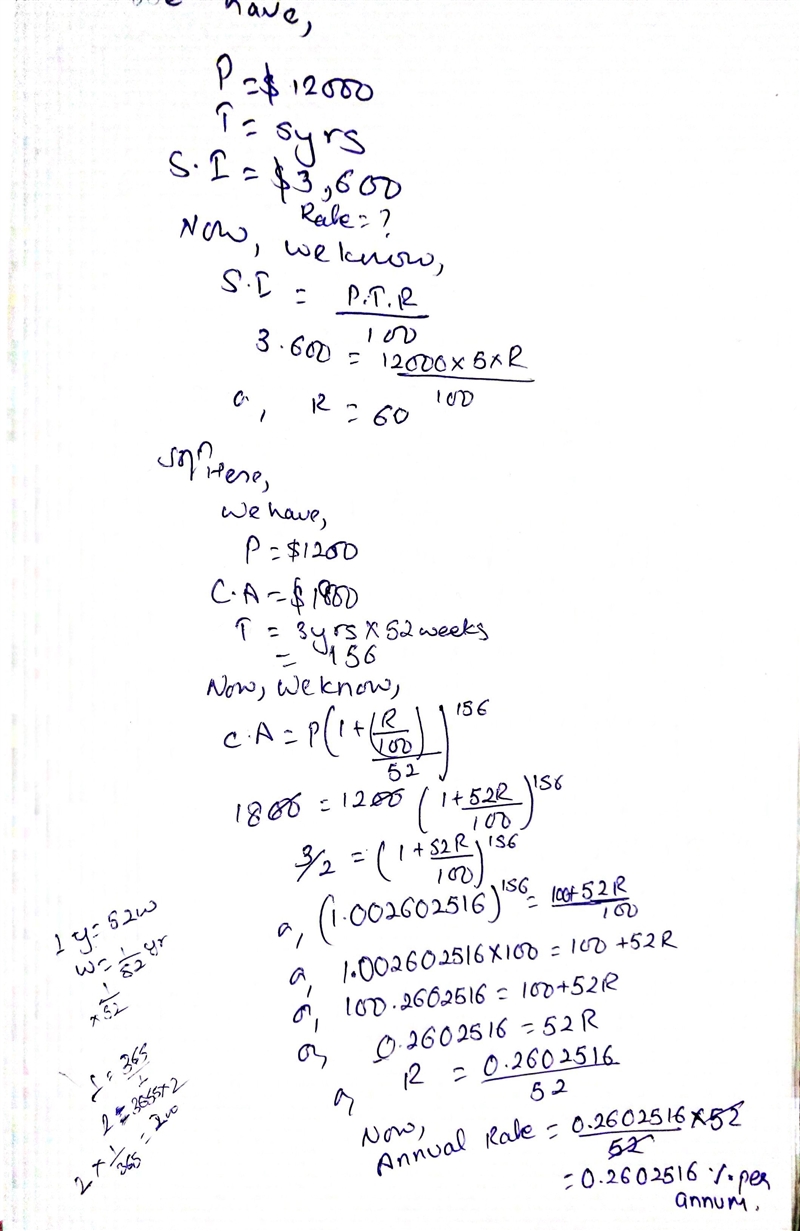 have,
P = $ 12000
T = 5yrs
S.I = $3,600
Rate = ?
Now, we know,
S.I = P.T.R / 100
3.600 = 12000 x 5 x R / 100
a, R = 60
Soln Here,
We have,
P = $1200
C.A = $1800
T = 3yrs x 52 weeks
= 156
Now, we know,
C.A = P(1 + (R/100)/52)^156
1800 = 1200 (1 + 52R/100)^156
3/2 = (1 + 52R/100)^156
a, (1.002602516)^156 = 100+52R/100
a, 1.002602516 x 100 = 100 + 52R
or, 100.2602516 = 100 + 52R
or, 0.2602516 = 52R
a, R = 0.2602516 / 52
Now,
Annual Rate = 0.2602516 / 52 x 52
= 0.2602516 % per
annum.
1 y = 52w
w = 1/52 yr
1
x 52
365
1
2
2 + 1/365 = 200